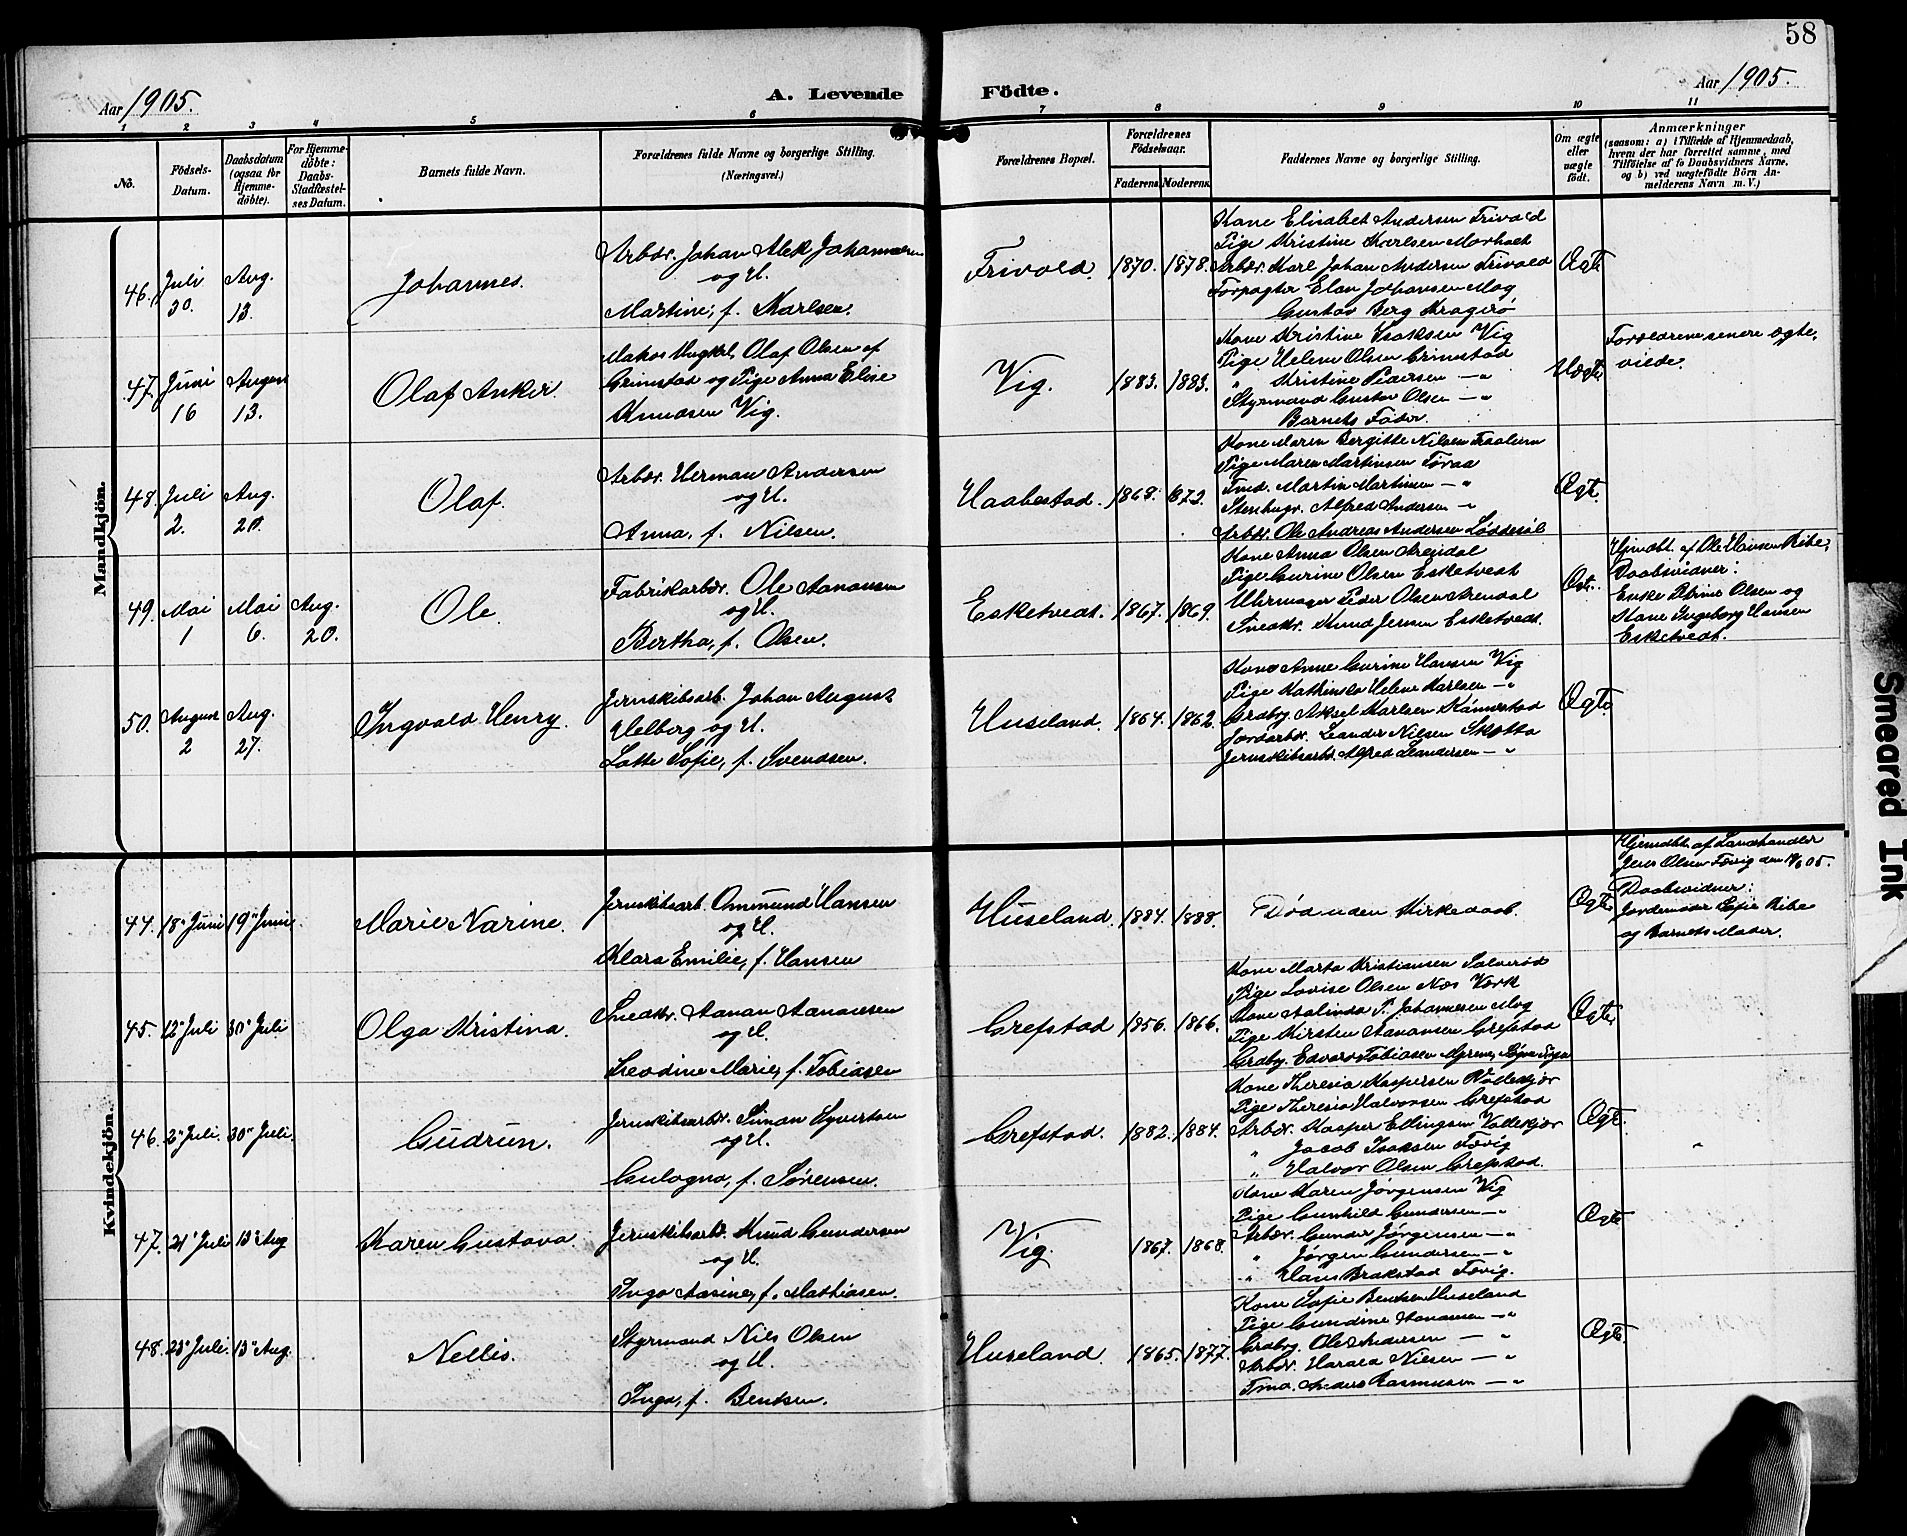 58
Aar 1905.
A. Levende Födte.
Aar 1905.
1 2 3 4 5 6 7 8 9 10 11
No.
Födsels-Datum.
Daabsdatum (ogsaa for Hjemme-döbte).
For Hjemme-döbte: Daabs-Stadfæstel-ses Datum.
Barnets fulde Navn.
Forældrenes fulde Navne og borgerlige Stilling. (Næringsvei.)
Forældrenes Bopæl.
Forældrenes Födselsaar.
Faderens. Moderens.
Faddernes Navne og borgerlige Stilling.
Om ægte eller uægte födt.
Anmærkninger
(saasom: a) i Tilfælde af Hjemmedaab,
hvem der har forrettet samme, med
Tilföielse af to Daabsvidners Navne,
og b) ved uægtefödte Börn An-
melderens Navn m. V.)
Mandkjön.
46. Juli 30. Aug. 13.
Johannes.
Arbdr. Johan Alek Johannesen
og H.
Martine, f. Karlsen.
Frivold. 1870. 1878.
Kone Elisabet Andersen Frivold
Pige Kristine Karlsen Morholt
Arbdr. Karl Johan Andersen Frivold
Forpagter Johansen Moy
Gustav Berg Kragerø
Ægte
47. Juni 16 August 13.
Olaf Anker.
Olaf Olsen af
Grimstad og Pige Anna Elise
Knudsen Vig.
Vig. 1883. 1883.
Kone Kristine Isaksen Vig
Pige Helene Olsen Grimstad
" Kristine Pedersen — "
Styrmand Gustav Olsen — "
Barnets Fader.
Uægte
Forældrene senere ægte-
viede.
48. Juli 2. Aug. 20.
Olaf.
Arbdr. Herman Andersen
og H.
Anna, f. Nilsen.
Haabestad. 1868. 1873.
Kone Maren Bergitte Nilsen
Pige Maren Martinsen
Tmd. Martin Martinsen — "
Stenhugr. Alfred Andersen "
Arbdr. Ole Andreas Andersen Løddesøl
Ægte.
49. Mai 1 Mai 6. Aug. 20.
Ole.
Fabrikarbdr. Ole Aanonsen
og H.
Bertha, f. Olsen.
Esketvedt. 1867. 1869.
Kone Anna Olsen Arendal
Pige Gurine Olsen Esketvedt
Uhrmager Peder Olsen Arendal
Snedkr. Knud Jensen Esketvedt.
Ægte.
Hjmdbt. af Ole Hansen Ribe,
Daabsvidner:
Enke Petrine Olsen og
Kone Ingeborg Hansen
Esketvedt.
50. August 2 Aug. 27.
Ingvald Henry.
Jernskibsarb. Johan August
Helberg og H.
Lotte Sofie, f. Svendsen.
Huseland. 1864. 1862.
Kone Anne Gurine Hansen Vig
Pige Kathinka Helene Karlsen — "
Grdbr. Aksel Karlsen Kannestad
Jordarbdr. Leander Nilsen Skotta
Jernskibsarb. Alfred Leandersen — "
Ægte
Kvindekjön.
44. 18de Juni 19de Juni.
Marie Narine.
Jernskibsarb. Ommund Hansen
og H.
Klara Emilie, f. Hansen
Huseland. 1884. 1888.
Død uden Kirkedaab.
Ægte
Hjemdbt. af Landhandler
Jens Olsen Fævig den 19/6 05.
Daabsvidner:
Jordemoder Sofie Ribe
og Barnets Moder.
45. 12te Juli 30te Juli
Olga Kristina.
Snedkr. Aanon Aanonsen
og H.
Leodine Marie, f. Tobiasen
Grefstad 1856. 1866.
Kone Marta Kristiansen
Pige Lovise Olsen Næs Værk
Kone Aalinda T. Johannesen Moy
Pige Kirsten Aanonsen Grefstad
Grdbr. Edvard Tobiasen
Ægte
46. 2den Juli. 30te Juli.
Gudrun.
Jernskibsarbdr. Simon Syvertsen
og H.
Gulogna, f. Sørensen.
Grefstad. 1882. 1884.
Kone Theresia Kaspersen
Pige Theresia Halvorsen Grefstad
Arbdr. Kasper Ellingsen
" Jacob Isaksen Fævig
" Halvor Olsen Grefstad.
Ægte.
47. 21de Juli 13de Aug
Karen Gustava.
Jernskibsarb. Knud Gundersen
og H.
Inga Aasine, f. Mathiasen.
Vig. 1867. 1868.
Kone Karen Jørgensen Vig
Pige Gunhild Gundersen — "
Arbdr. Gunder Jørgensen — "
" Jørgen Gundersen — "
" Hans Brakstad Fævig.
Ægte
48. 23de Juli. 13de Aug.
Nellie.
Styrmand Nils Olsen
og H.
Inga, f. Bentsen.
Huseland. 1865. 1877.
Kone Sofie Bentsen Huseland
Pige Gundine Aanonsen — "
Grdbr. Ole Andersen — "
Arbdr. Harald Nilsen — "
Tmd. Anders Rasmussen — "
Ægte.
Smeared Ink